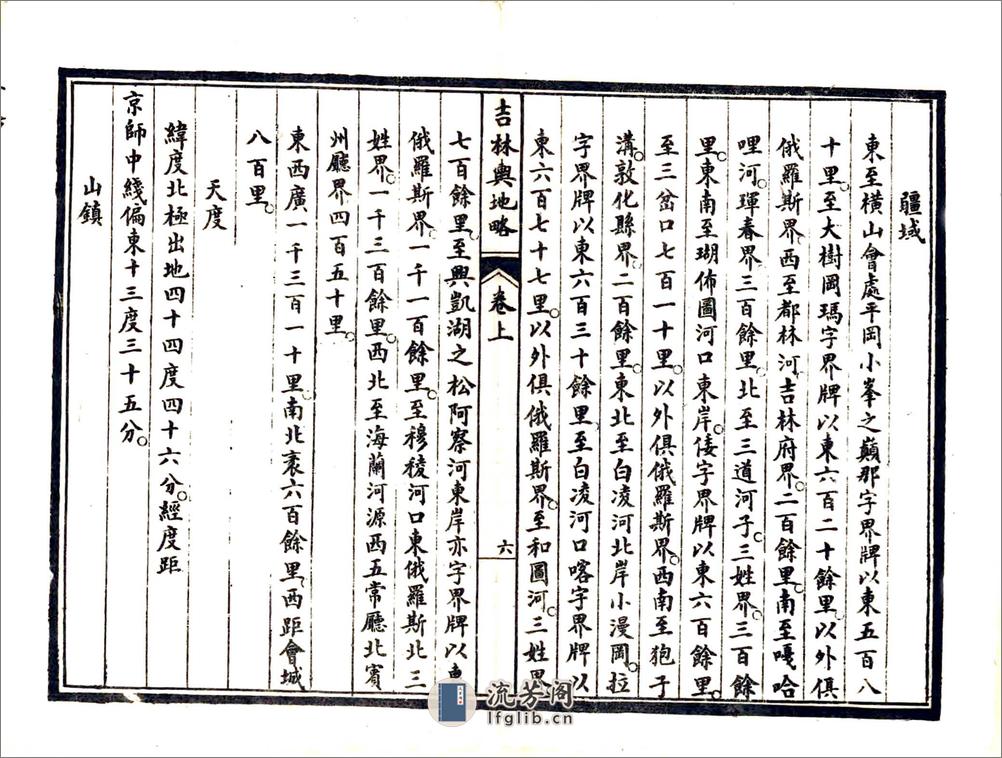 疆域
東至橫山會處平岡小峯之巔那字界牌以東五百八
十里。至大樹岡瑪字界牌以東六百二十餘里。以外俱
俄羅斯界。西至都林河吉林府界。二百餘里。南至嘎哈
哩河。琿春界三百餘里。北至三道河子。三姓界。三百餘
里。東南至瑚佈圖河口東岸。倭字界牌以東六百餘里。
至三岔口七百一十里。以外俱俄羅斯界。西南至狍子
溝。敦化縣界。二百餘里。東北至白凌河北岸小漫岡。拉
字界牌以東六百三十餘里。至白凌河口喀字界牌以
東六百七十七里。以外俱俄羅斯界。至和圖河。三姓界
吉林輿地略 卷上 六
七百餘里。至興凱湖之松阿察河東岸亦字界牌以東
俄羅斯界。一千一百餘里。至穆稜河口東俄羅斯北三
姓界。一千三百餘里。西北至海蘭河源西五常廳北賓
州廳界四百五十里。
東西廣一千三百一十里。南北袤六百餘里。西距會城
八百里。
天度
緯度北極出地四十四度四十六分。經度距
京師中綫偏東十三度三十五分。
山鎮
流芳閣
lfglib.cn